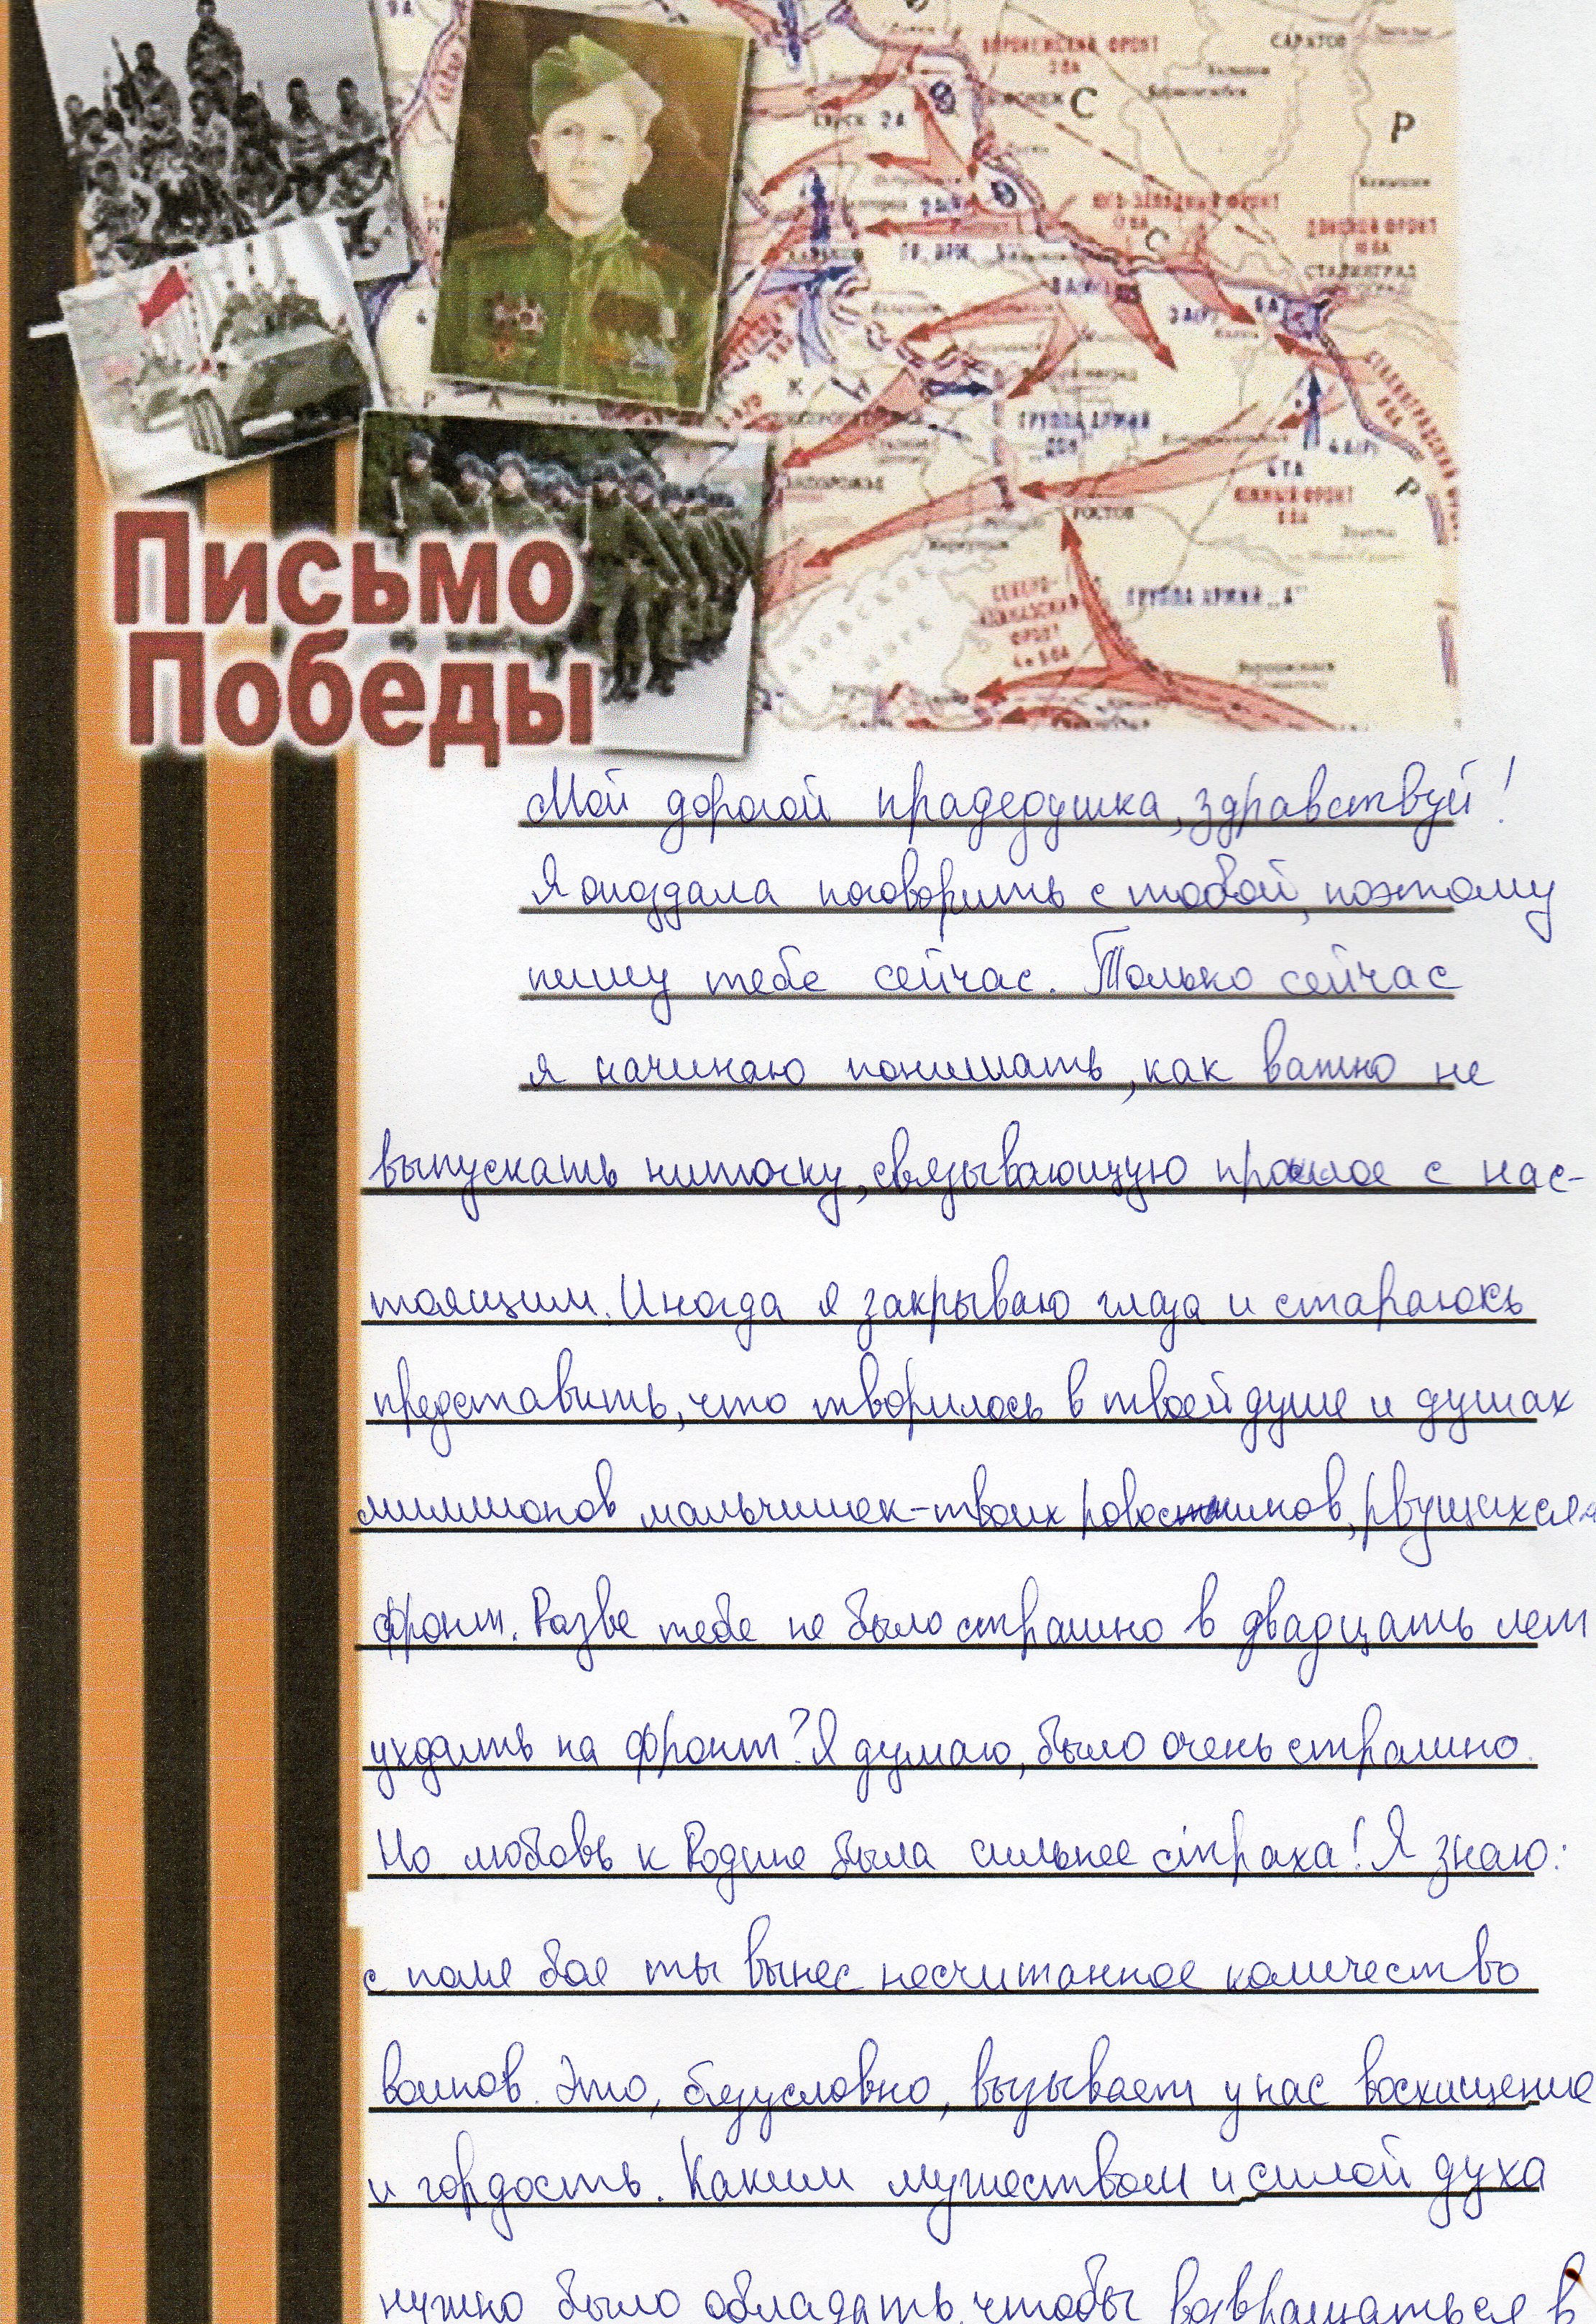 Письмо
Победы
ВОРОНЕЖСКИЙ ФРОНТ
САРАТОВ
С
Р
ЮГО-ЗАПАДНЫЙ ФРОНТ
ДОНСКОЙ ФРОНТ
СТАЛИНГРАД
ГРУППА АРМИЙ
"ДОН"
ЗАПОРОЖЬЕ
РОСТОВ
ЮЖНЫЙ ФРОНТ
ГРУППА АРМИЙ „А"
Мой дорогой прадедушка, здравствуй!
Я опоздала поговорить с тобой, поэтому
пишу тебе сейчас. Только сейчас
я начинаю понимать, как важно не
выпускать ниточку, связывающую прошлое с нас-
тоящим. Иногда я закрываю глаза и стараюсь
представить, что творилось в твоей душе и душах
миллионов мальчишек-твоих ровесников, рвущихся на
фронт. Разве тебе не было страшно в двадцать лет
уходить на фронт? Я думаю, было очень страшно.
Но любовь к Родине была сильнее страха! Я знаю:
с поле боя ты вынес несчитанное количество
воинов. Это, безусловно, вызывает у нас восхищение
и гордость. Каким мужеством и силой духа
нужно было обладать, чтобы возвращаться в